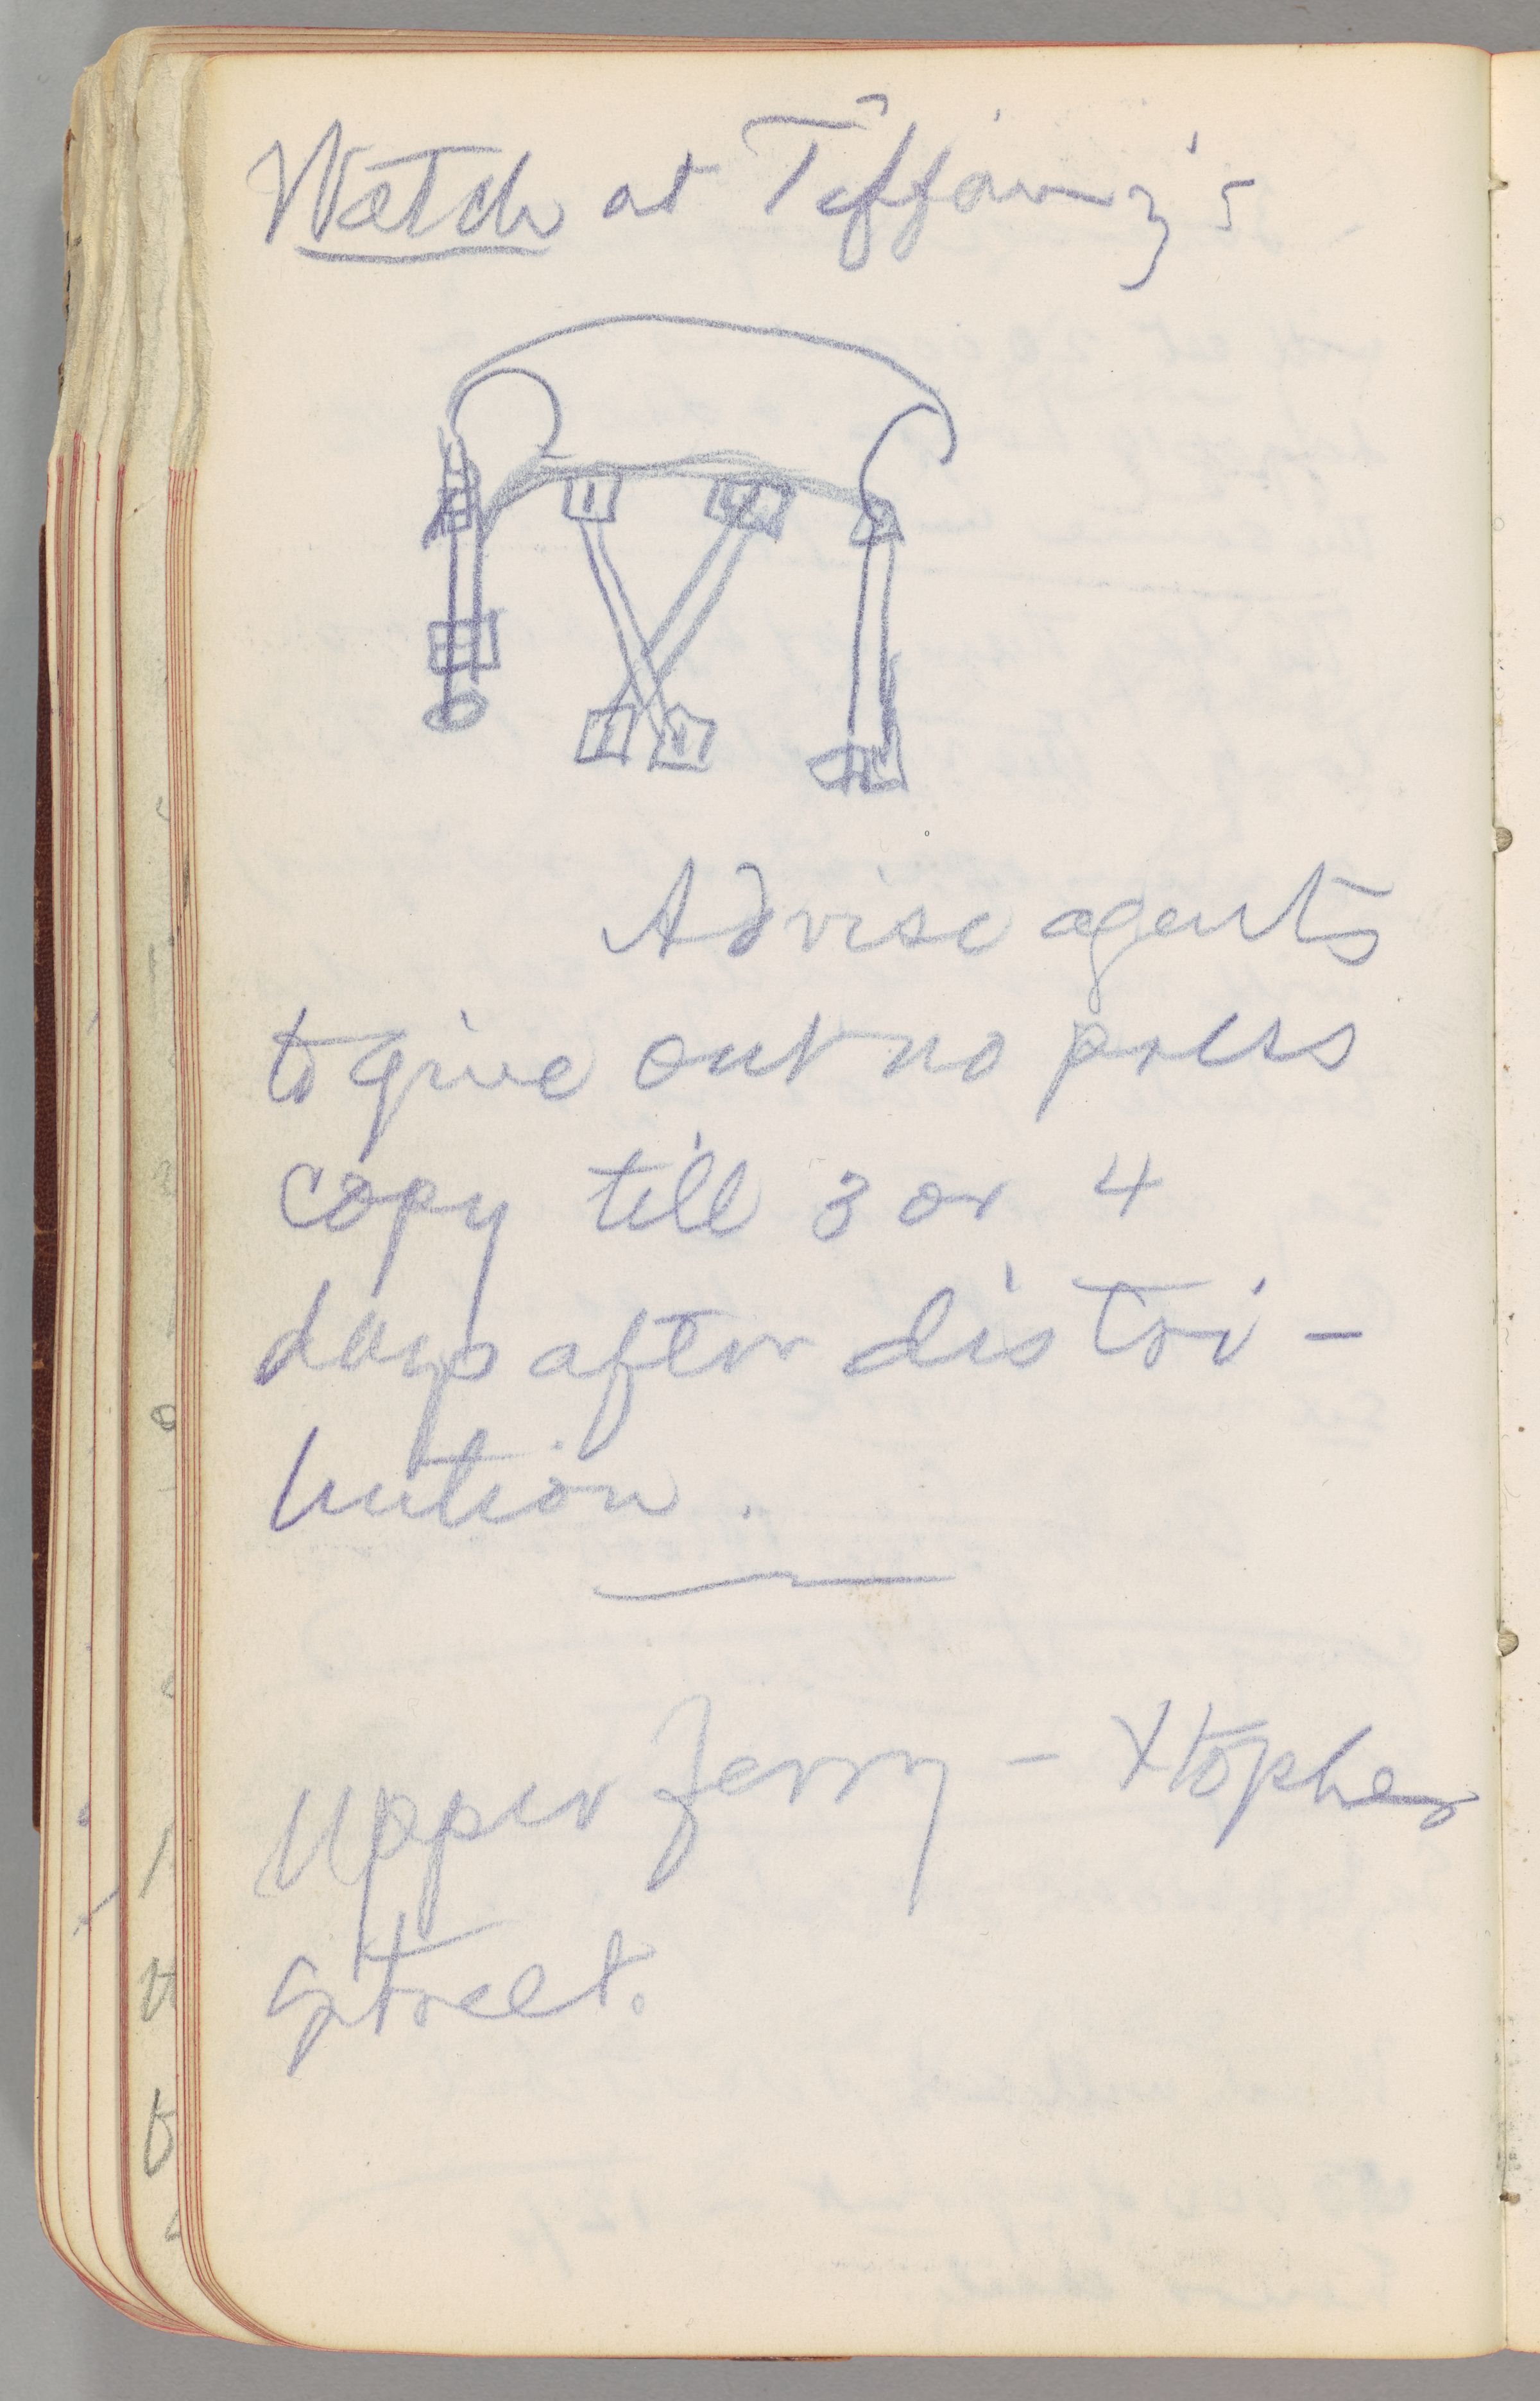 Watch at Tiffany's
Advise agents
to give out no press
copy till 3 or 4
days after distri-
bution.
Upper ferry - Xtopher
street.